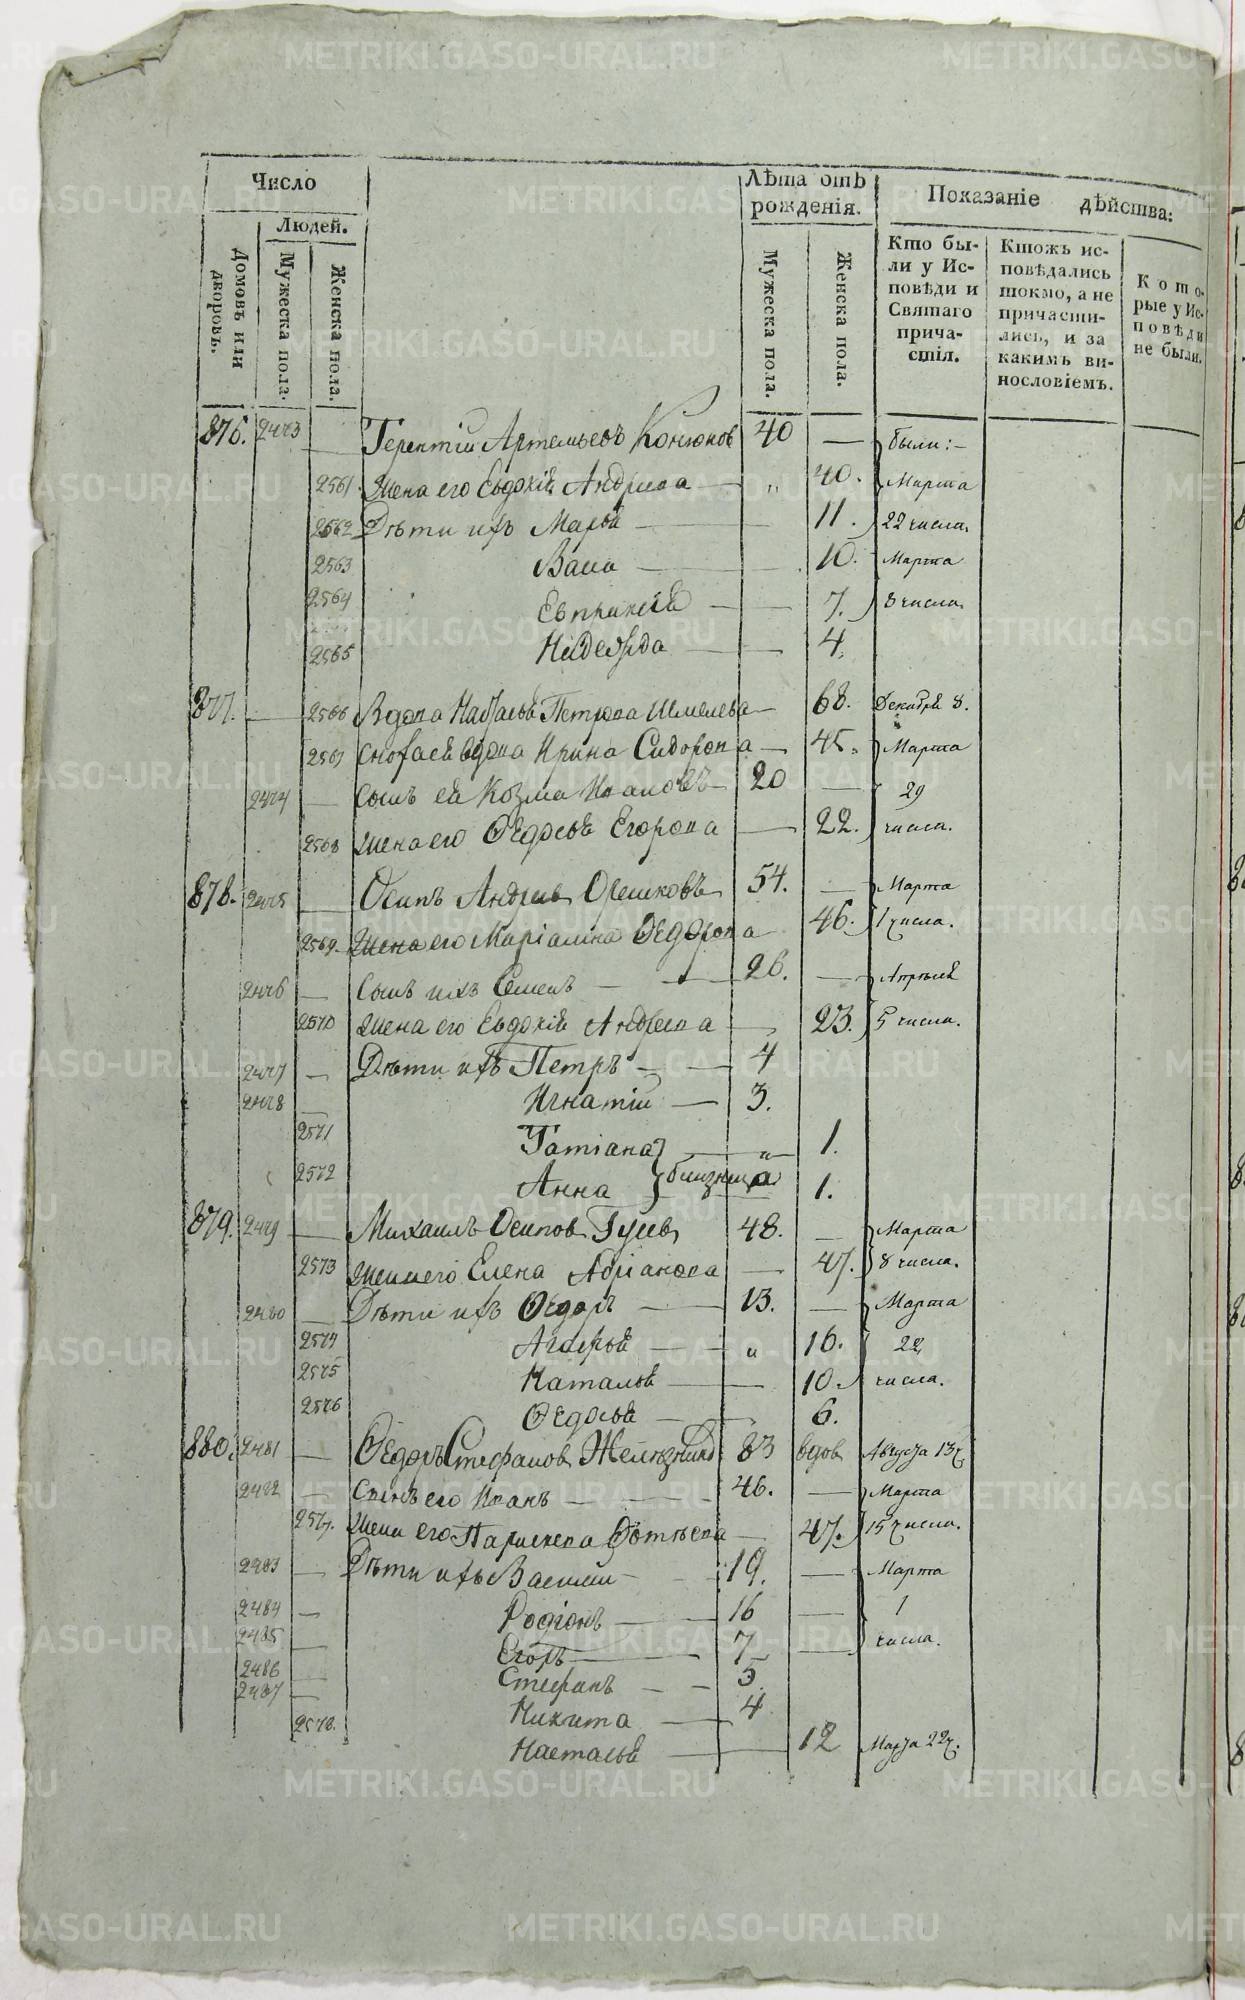 Число
Людей.
Домовъ или дворовъ.
Мужеска пола.
Женска пола.
Лѣта отъ рожденія.
Мужеска пола.
Женска пола.
Показаніе дѣйства:
Кто бы-
ли у Ис-
повѣди и
Святаго
прича-
стія.
Ктожъ ис-
повѣдались
токмо, а не
причасти-
лись, и за
какимъ ви-
нословіемъ.
Кото-
рые у Ис-
повѣди
не были.
876. 2473 — Терентій Артемьевъ Конюхов 40 — были:-
2561. Жена его Евдокія Андреева — „ 40. Марта
2562 Дѣти ихъ Марья — 11. 22 числа.
2563 Васса — 10. Марта
2564 Евпраксія — 7. 8 числа.
2565 Надежда — 4.
877. — 2566 Вдова Наталья Петрова Шмелева — 68. Декабря 8.
2567 Сноха ея вдова Ирина Сидорова — 45. Марта
2474 — Сынъ ея Козма Ивановъ — 20 — 29
2568 Жена его Ѳедосья Егорова — 22. числа.
878. 2475 — Осипъ Андреев Орешковъ 54. — Марта
2569. Жена его Маріамна Ѳедорова 46. 1 числа.
2476 — Сынъ ихъ Семенъ — 26. — Апреля
2570 Жена его Евдокія Андреева — 23. 5 числа.
2477 — Дѣти ихъ Петръ — 4
2478 — Игнатій — 3.
2571 Татіана — „ 1.
2572 Анна } близнеца 1.
879. 2479 — Михаилъ Осипов Гусев 48. — Марта
2573 Жена его Елена Адріанова — 47. 8 числа.
2480 — Дѣти ихъ Ѳедоръ — 13. — Марта
2574 Агафья — „ 16. 22
2575 Наталья — 10. числа.
2576 Ѳедосья — 6.
880. 2481 — Ѳедоръ Стефанов 83 вдов Августа 13 ч.
2482 — Сынъ его Иванъ — 46. — Марта
2577. Жена его Парасковa — 47. 15 числа.
2483 — Дѣти ихъ Василій — 19. — Марта
2484 — Родіонъ — 16 — 1
2485 — Егоръ — 7 — числа.
2486 — Стефанъ — 5.
2487 — Никита — 4
2578. Настасья — 12 Марта 22 ч.
METRIKI.GASO-URAL.RU